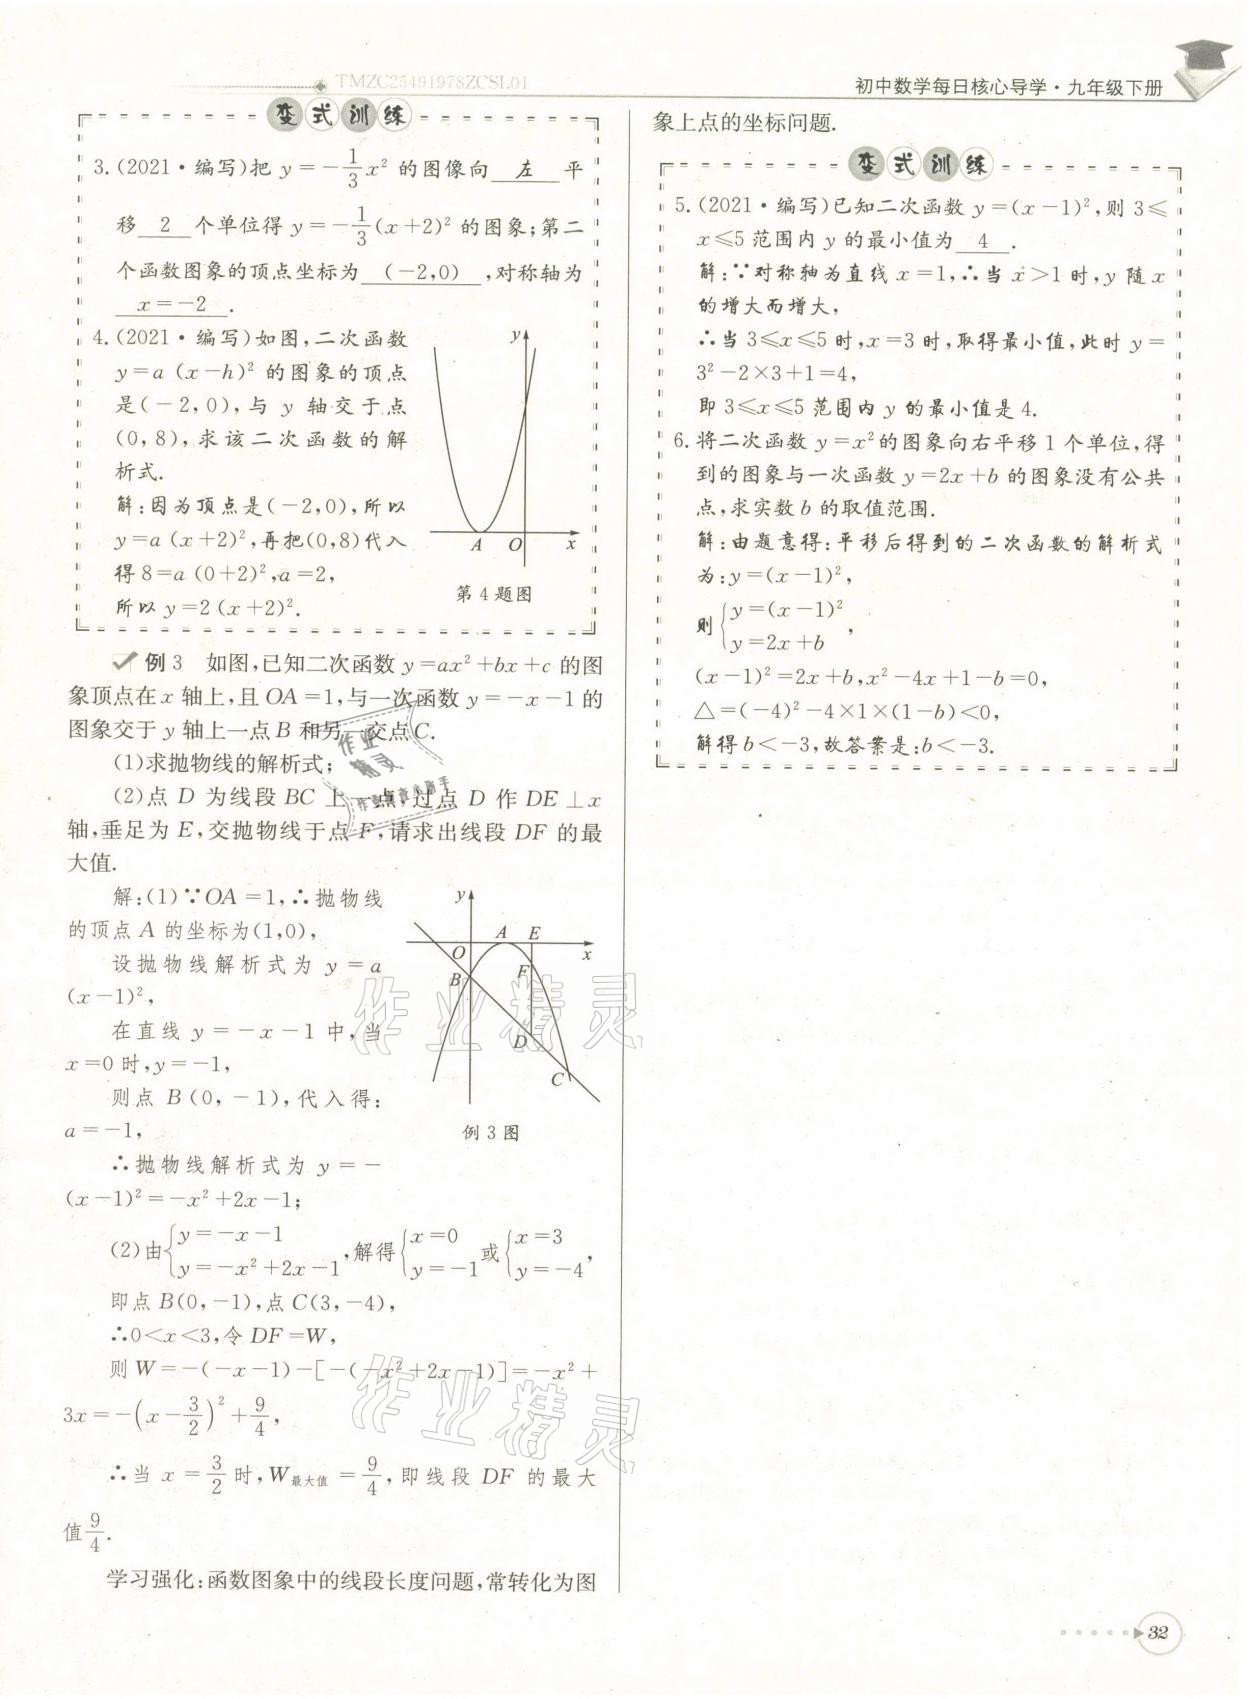 TMZC25491978ZCSL01
初中数学每日核心导学·九年级下册
变式训练
3.(2021·编写)把 y=-1/3x² 的图像向 左 平
移 2 个单位得 y=-1/3(x+2)² 的图象;第二
个函数图象的顶点坐标为 (-2,0) ,对称轴为
x=-2 .
4.(2021·编写)如图,二次函数
y=a (x-h)² 的图象的顶点
是(-2,0),与 y 轴交于点
(0,8),求该二次函数的解
析式.
解:因为顶点是(-2,0),所以
y=a (x+2)²,再把(0,8)代入
得 8=a (0+2)²,a=2,
所以 y=2 (x+2)².
y
A O x
第 4 题图
例 3 如图,已知二次函数 y=ax²+bx+c 的图
象顶点在 x 轴上,且 OA=1,与一次函数 y=-x-1 的
图象交于 y 轴上一点 B 和另一交点C.
(1)求抛物线的解析式;
(2)点 D 为线段 BC 上一点,过点 D 作 DE⊥x
轴,垂足为 E,交抛物线于点 F,请求出线段 DF 的最
大值.
解:(1)∵OA=1,∴抛物线
的顶点 A 的坐标为(1,0),
设抛物线解析式为 y=a
(x-1)²,
在直线 y=-x-1 中,当
x=0 时,y=-1,
则点 B(0,-1),代入得:
a=-1,
∴抛物线解析式为 y=-
(x-1)²=-x²+2x-1;
y
A E
O x
B F
D
C
例 3 图
(2)由{y=-x-1
y=-x²+2x-1,解得{x=0
y=-1 或{x=3
y=-4,
即点 B(0,-1),点 C(3,-4),
∴0<x<3,令 DF=W,
则 W=-(-x-1)-[-(-x²+2x-1)]=-x²+
3x=-(x-3/2)²+9/4,
∴当 x=3/2时,W最大值=9/4,即线段 DF 的最大
值9/4.
学习强化:函数图象中的线段长度问题,常转化为图
象上点的坐标问题.
变式训练
5.(2021·编写)已知二次函数 y=(x-1)²,则 3≤
x≤5 范围内 y 的最小值为 4 .
解:∵对称轴为直线 x=1,∴当 x>1 时,y 随 x
的增大而增大,
∴当 3≤x≤5 时,x=3 时,取得最小值,此时 y=
3²-2×3+1=4,
即 3≤x≤5 范围内 y 的最小值是 4.
6.将二次函数 y=x²的图象向右平移 1 个单位,得
到的图象与一次函数 y=2x+b 的图象没有公共
点,求实数 b 的取值范围.
解:由题意得:平移后得到的二次函数的解析式
为:y=(x-1)²,
则{y=(x-1)²
y=2x+b ,
(x-1)²=2x+b,x²-4x+1-b=0,
△=(-4)²-4×1×(1-b)<0,
解得 b<-3,故答案是:b<-3.
作业精灵
作业精灵
作业精灵
32